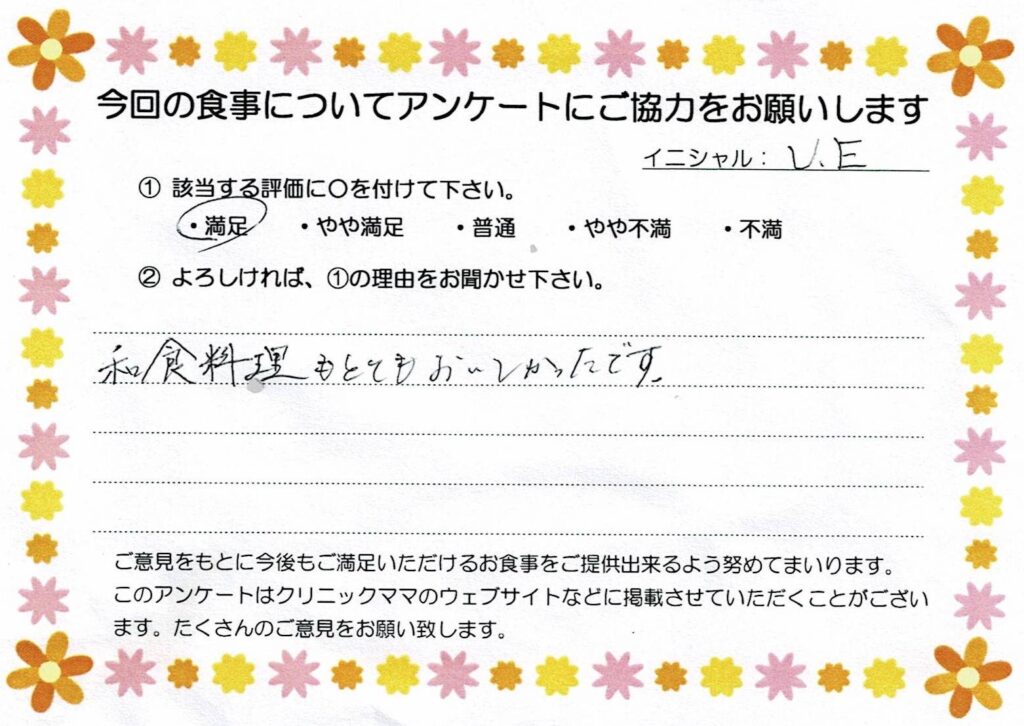 今回の食事についてアンケートにご協力をお願いします
イニシャル： U.E
① 該当する評価に〇を付けて下さい。
・満足 ・やや満足 ・普通 ・やや不満 ・不満
② よろしければ、①の理由をお聞かせ下さい。
和食料理もとてもおいしかったです。
ご意見をもとに今後もご満足いただけるお食事をご提供出来るよう努めてまいります。
このアンケートはクリニックママのウェブサイトなどに掲載させていただくことがござい
ます。たくさんのご意見をお願い致します。